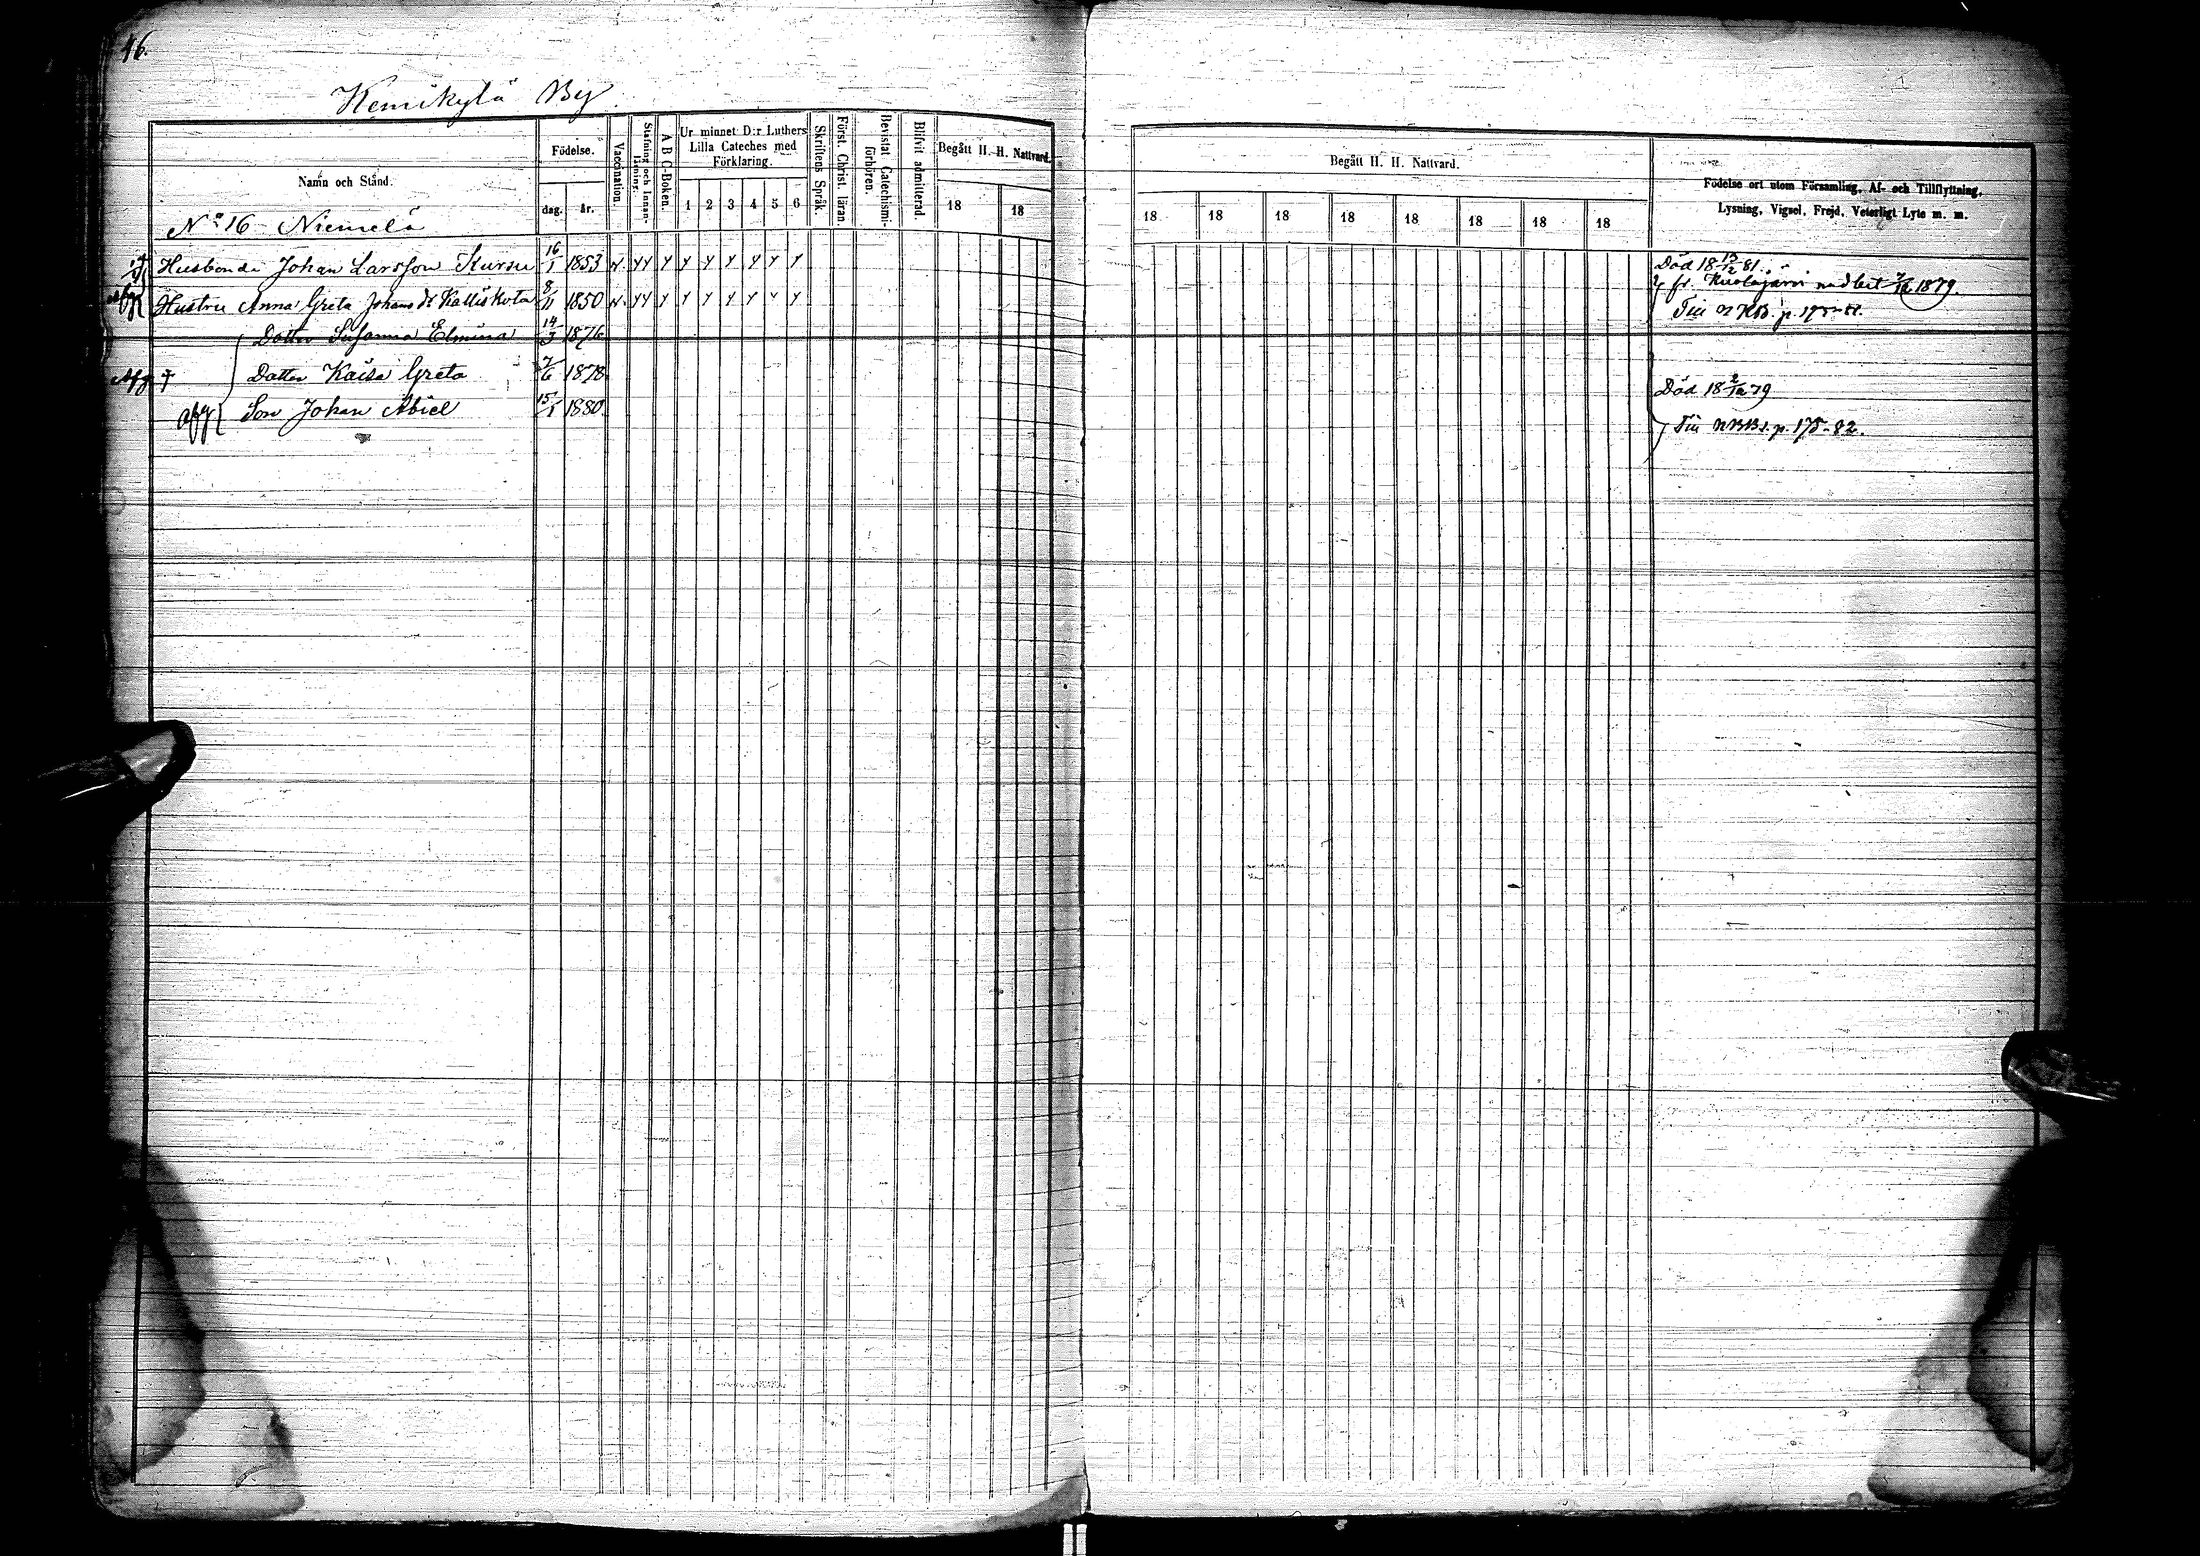 16.
Kemikylä By.
Namn och Stånd.
Födelse.
dag. år.
Vaccination.
Stafning och Innanläsning.
A B C-Boken.
Ur minnet D:r Luthers Lilla Cateches med Förklaring.
1 2 3 4 5 6
Skriftens Språk.
Först. Christ. läran.
Bevistat Catechismiförhören.
Blifvit admitterad.
Begått H. H. Nattvard.
18 18
Begått H. H. Nattvard.
18 18 18 18 18 18 18 18
Födelse ort utom Församling, Af- och Tillflyttning,
Lysning, Vigsel, Frejd, Veterligt Lyte m. m.
No 16 Niemelä
† Husbonde Johan Larsson Kursu 16/1 1853 Död 18 13/12 81.
afg Hustru Anna Greta Johansdr Kalliskota 8/11 1850 fr. Kuolajärvi 1879.
p. 175
Dotter Susanna Elmina 14/3 1876
Afg † Dotter Kaisa Greta 7/6 1878 Död 18 2/12 79
afg Son Johan Abiel 15/1 1880 p. 175-82.